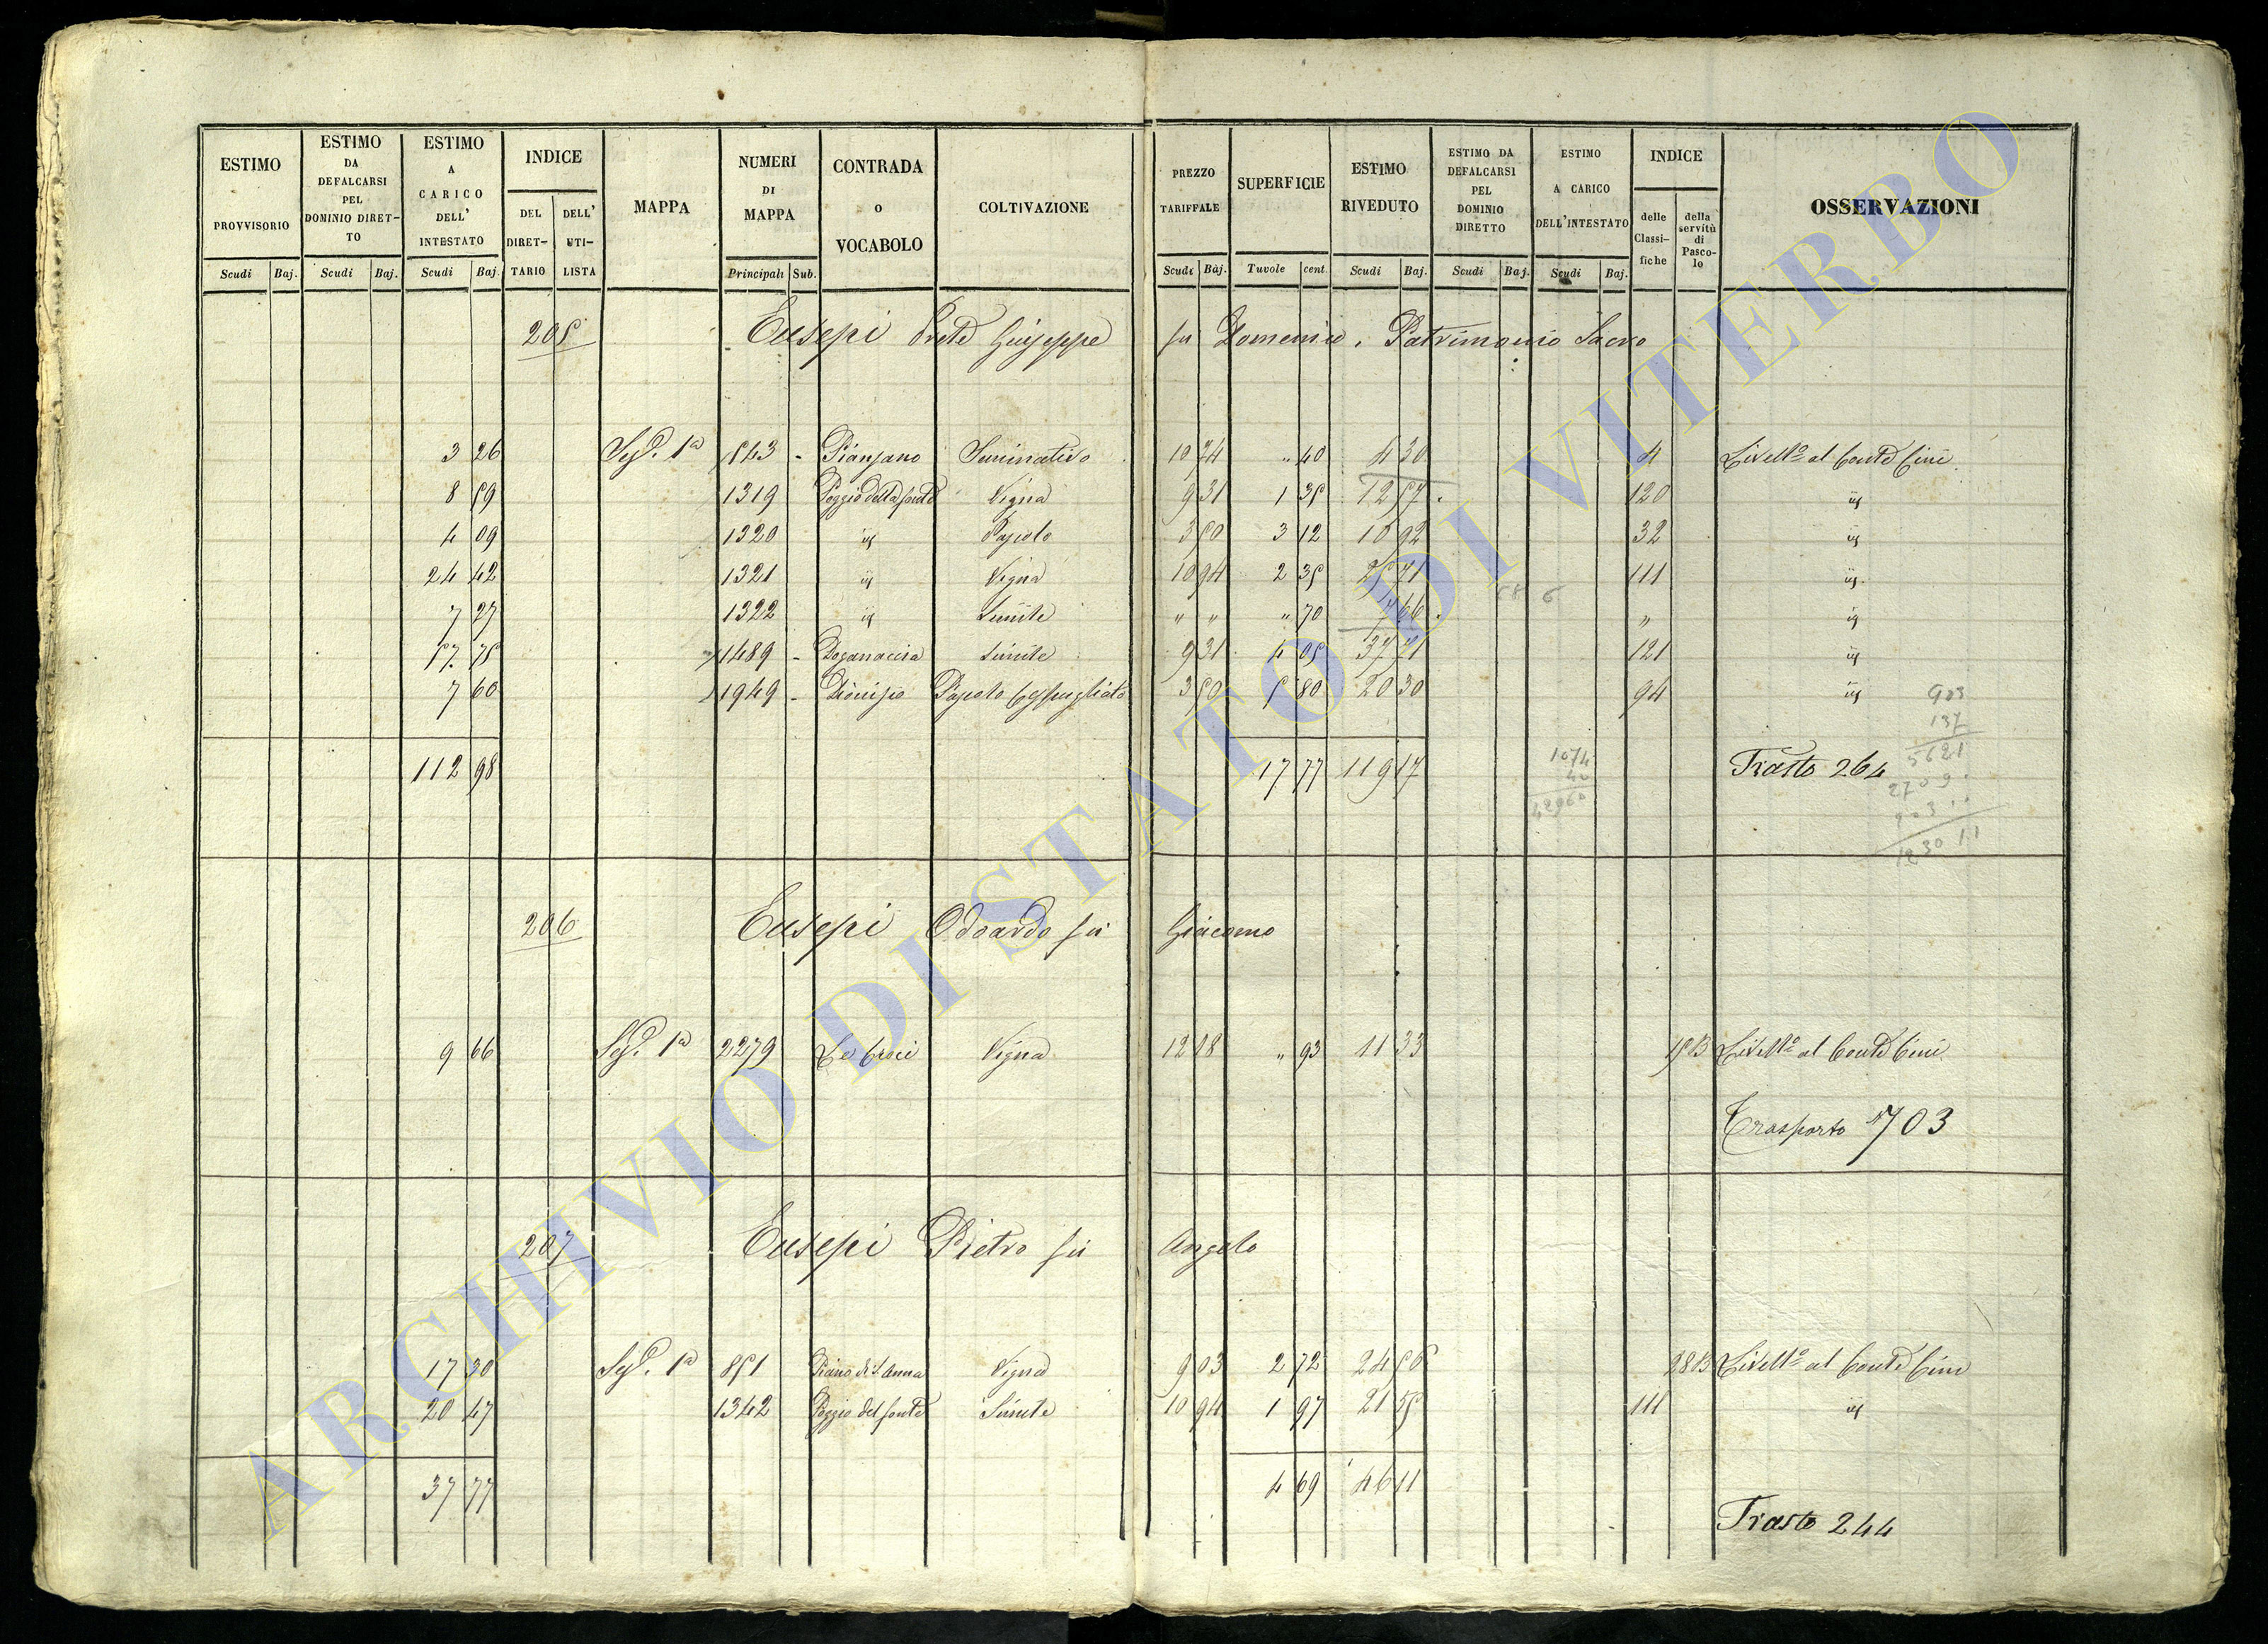 ESTIMO PROVVISORIO Scudi Baj.
ESTIMO DA DEFALCARSI PEL DOMINIO DIRETTO Scudi Baj.
ESTIMO A CARICO DELL' INTESTATO Scudi Baj.
INDICE DEL DIRETTARIO DELL' UTILISTA
MAPPA
NUMERI DI MAPPA Principali Sub.
CONTRADA o VOCABOLO
COLTIVAZIONE
PREZZO TARIFFALE Scudi Baj.
SUPERFICIE Tavole cent.
ESTIMO RIVEDUTO Scudi Baj.
ESTIMO DA DEFALCARSI PEL DOMINIO DIRETTO Scudi Baj.
ESTIMO A CARICO DELL'INTESTATO Scudi Baj.
INDICE delle Classifiche della servitù di Pascolo
OSSERVAZIONI
205 Eusepi Prete Giuseppe fu Domenico. Patrimonio Sacro
3 26 Sez. 1a 843 - Pianzano Seminativo 10 74 " 40 4 30 4 Livello al Conte Cini
8 59 1319 Poggio della fonte Vigna 9 31 1 35 12 57 120 id
4 09 1320 id Pascolo 3 50 3 12 10 92 32 id
24 42 1321 id Vigna 10 94 2 35 25 71 111 id
7 27 1322 id Simile " " " 70 7 66 " id
57 75 1489 - Doganaccia Simile 9 31 4 05 37 71 121 id
7 60 1949 - Dionisio Pascolo Cespugliato 3 50 5 80 20 30 94 id
903
137
5621
2709
903
1074
40
42960
112 98 17 77 119 17 Trasto 264
206 Eusepi Odoardo fu Giacomo
9 66 Sez. 1a 2279 Le Croci Vigna 12 18 " 93 11 33 Livello al Conte Cini
Trasporto 703
207 Eusepi Pietro fu Angelo
17 30 Sez. 1a 851 Piano di S. Anna Vigna 9 03 2 72 24 56 Livello al Conte Cini
20 47 1342 Poggio del fonte Simile 10 94 1 97 21 55 111 id
37 77 4 69 46 11
Trasto 244
ARCHIVIO DI STATO DI VITERBO